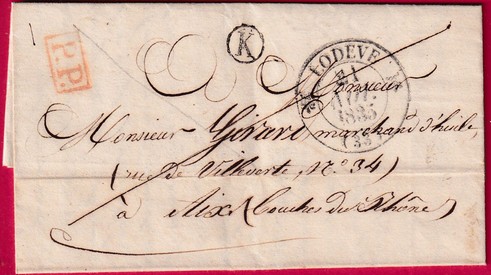 P.P.
K
LODEVE
1835
(33)
Monsieur
Monsieur Girard, marchand d'huile,
(rue de Villeverte, N.º 34)
à Aix (Bouches du Rhône)